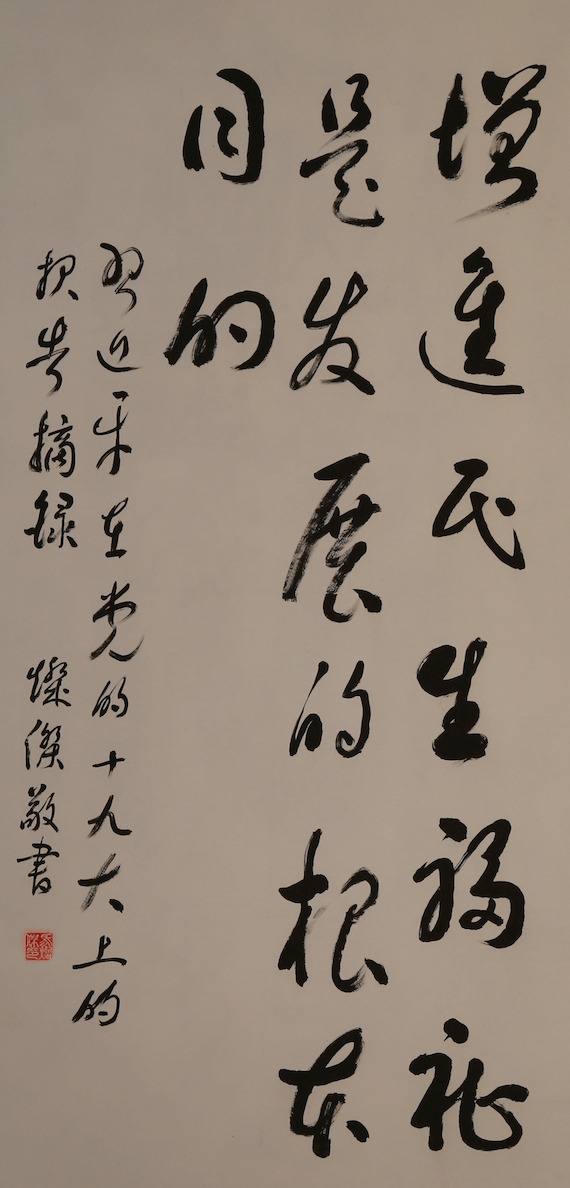 增進民生福祉
是发展的根本
目的
習近平在党的十九大上的
报告摘录 燦傑敬書